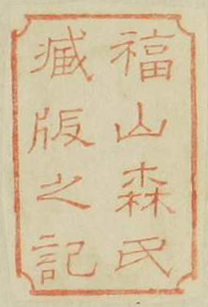 福山森氏
臧版之記